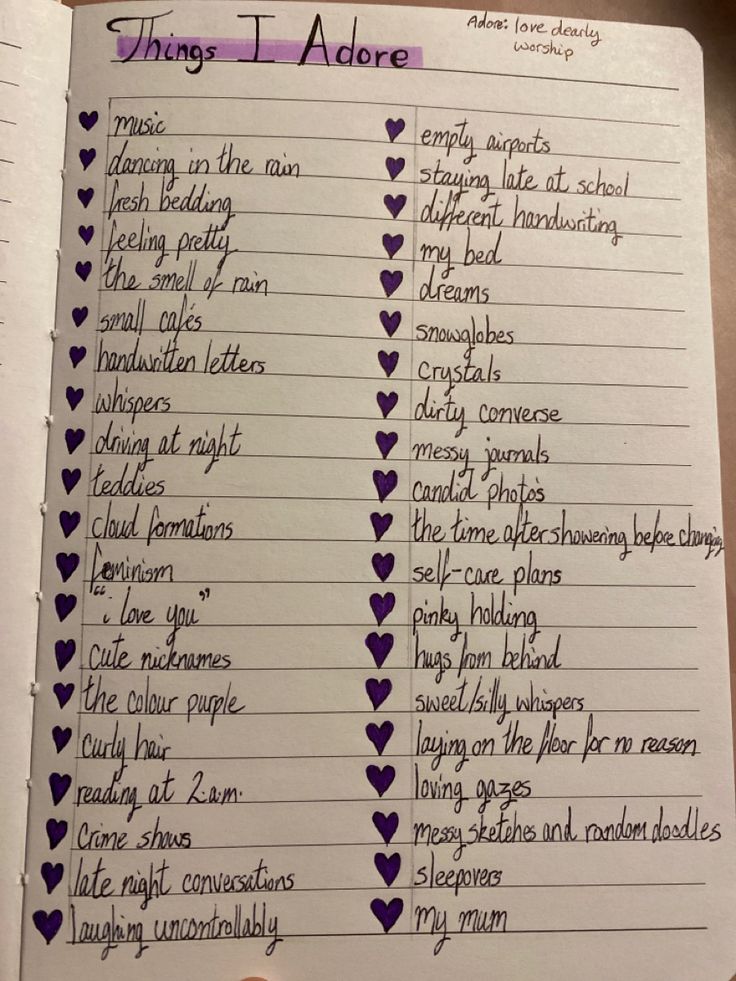 Things I Adore
Adore: love dearly
worship
music
dancing in the rain
fresh bedding
feeling pretty
the smell of rain
small cafés
handwritten letters
whispers
driving at night
teddies
cloud formations
feminism
"i love you"
cute nicknames
the colour purple
curly hair
reading at 2.a.m.
Crime shows
late night conversations
laughing uncontrollably
empty airports
staying late at school
different handwriting
my bed
dreams
snowglobes
crystals
dirty converse
messy journals
candid photo's
the time after showering before changing
self-care plans
pinky holding
hugs from behind
sweet/silly whispers
laying on the floor for no reason
loving gazes
messy sketches and random doodles
sleepovers
my mum